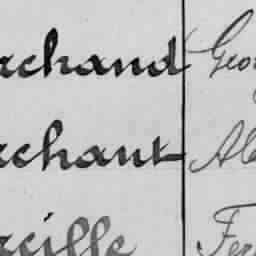 rchand Geo
rchant Al
rcille Fer